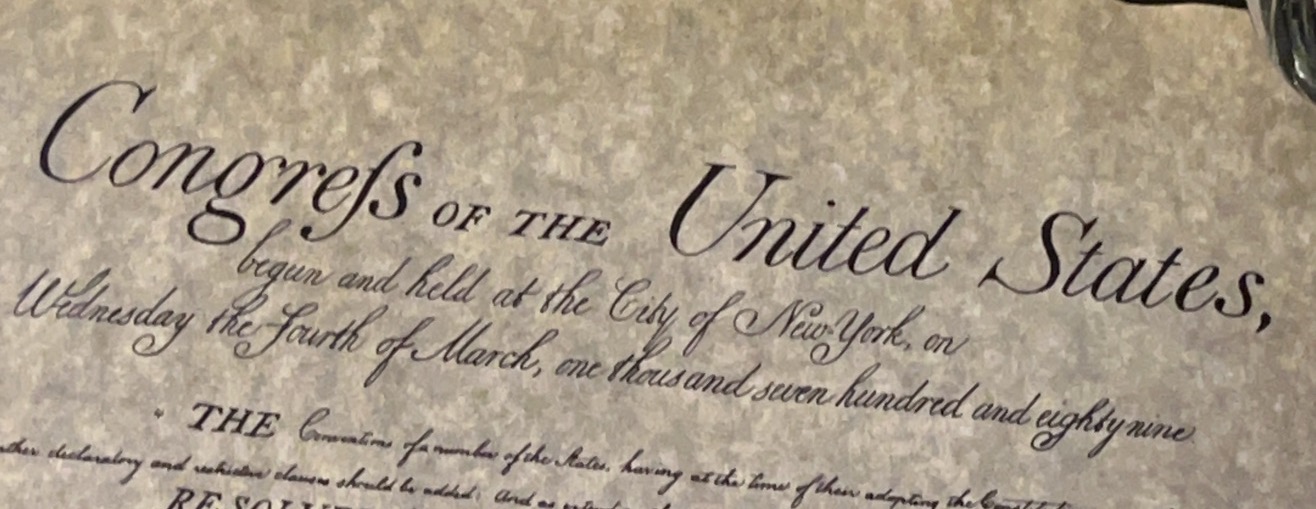 Congreſs OF THE United States,
begun and held at the City of New-York, on
Wednesday the Fourth of March, one thousand seven hundred and eighty nine
THE Conventions of a number of the States, having at the time of their adopting the Constitut
other declaratory and restrictive clauses should be added: And as
RESOLVE